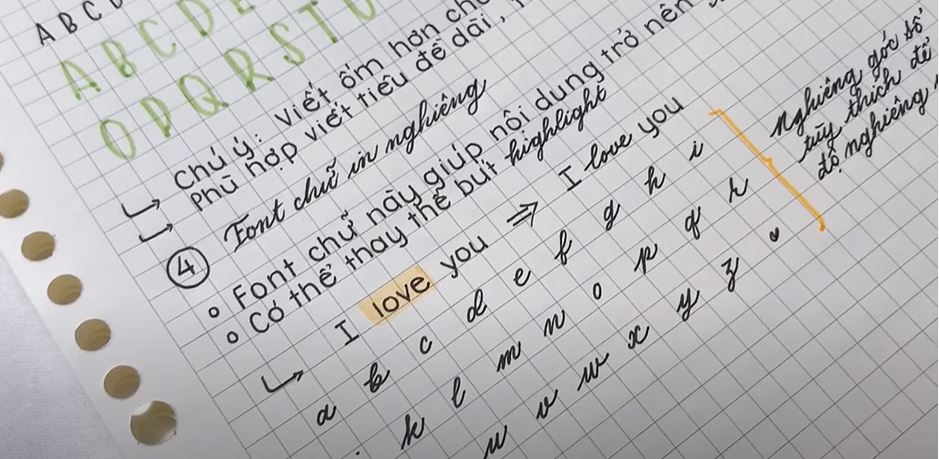 A B C
A B C D E
O P Q R S T U
→ Chú ý: Viết ốm hơn
→ Phù hợp viết tiêu đề dài,
④ Font chữ in nghiêng
o Font chữ này giúp nội dung trở nên
o Có thể thay thế bút highlight
↳ I love you ⇒ I love you
a b c d e f g h i
k l m n o p q r
u v w x y z ♥
Nghiêng góc số
tùy thích để
độ nghiêng